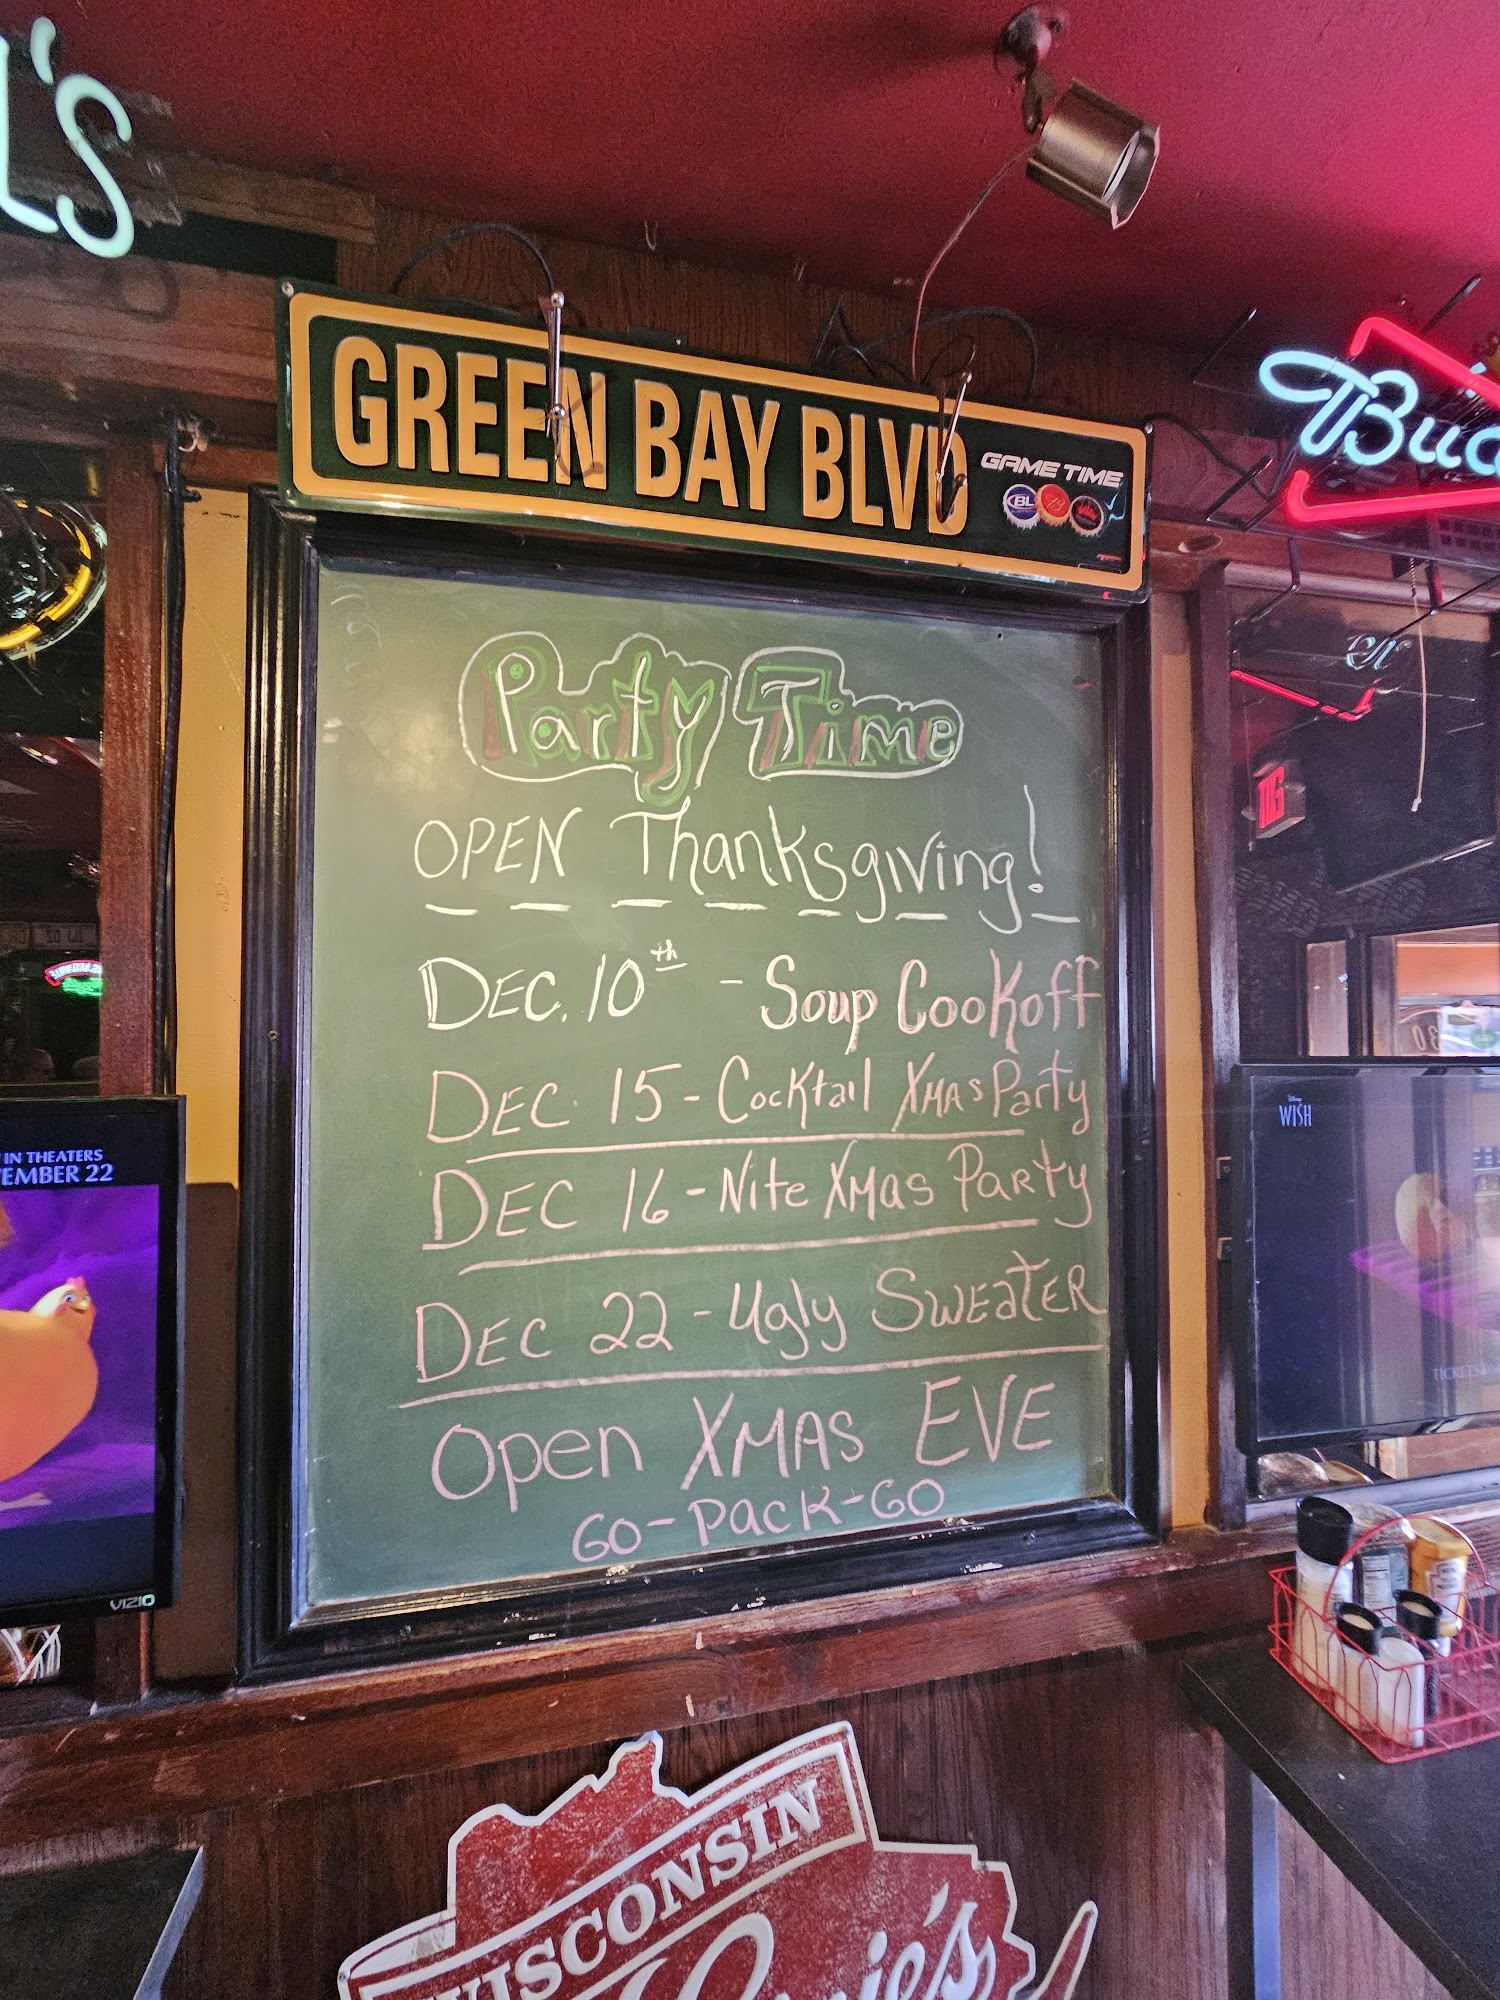 L'S
GREEN BAY BLVD
GAME TIME
BL
Party Time
OPEN Thanksgiving!
DEC. 10th - Soup Cookoff
DEC. 15 - Cocktail XMAS Party
DEC 16 - Nite XMAS PARTY
DEC 22 - Ugly SWEATER
Open XMAS EVE
GO-PACK-GO
IN THEATERS
EMBER 22
VIZIO
Bud
Disney
WISH
WISCONSIN